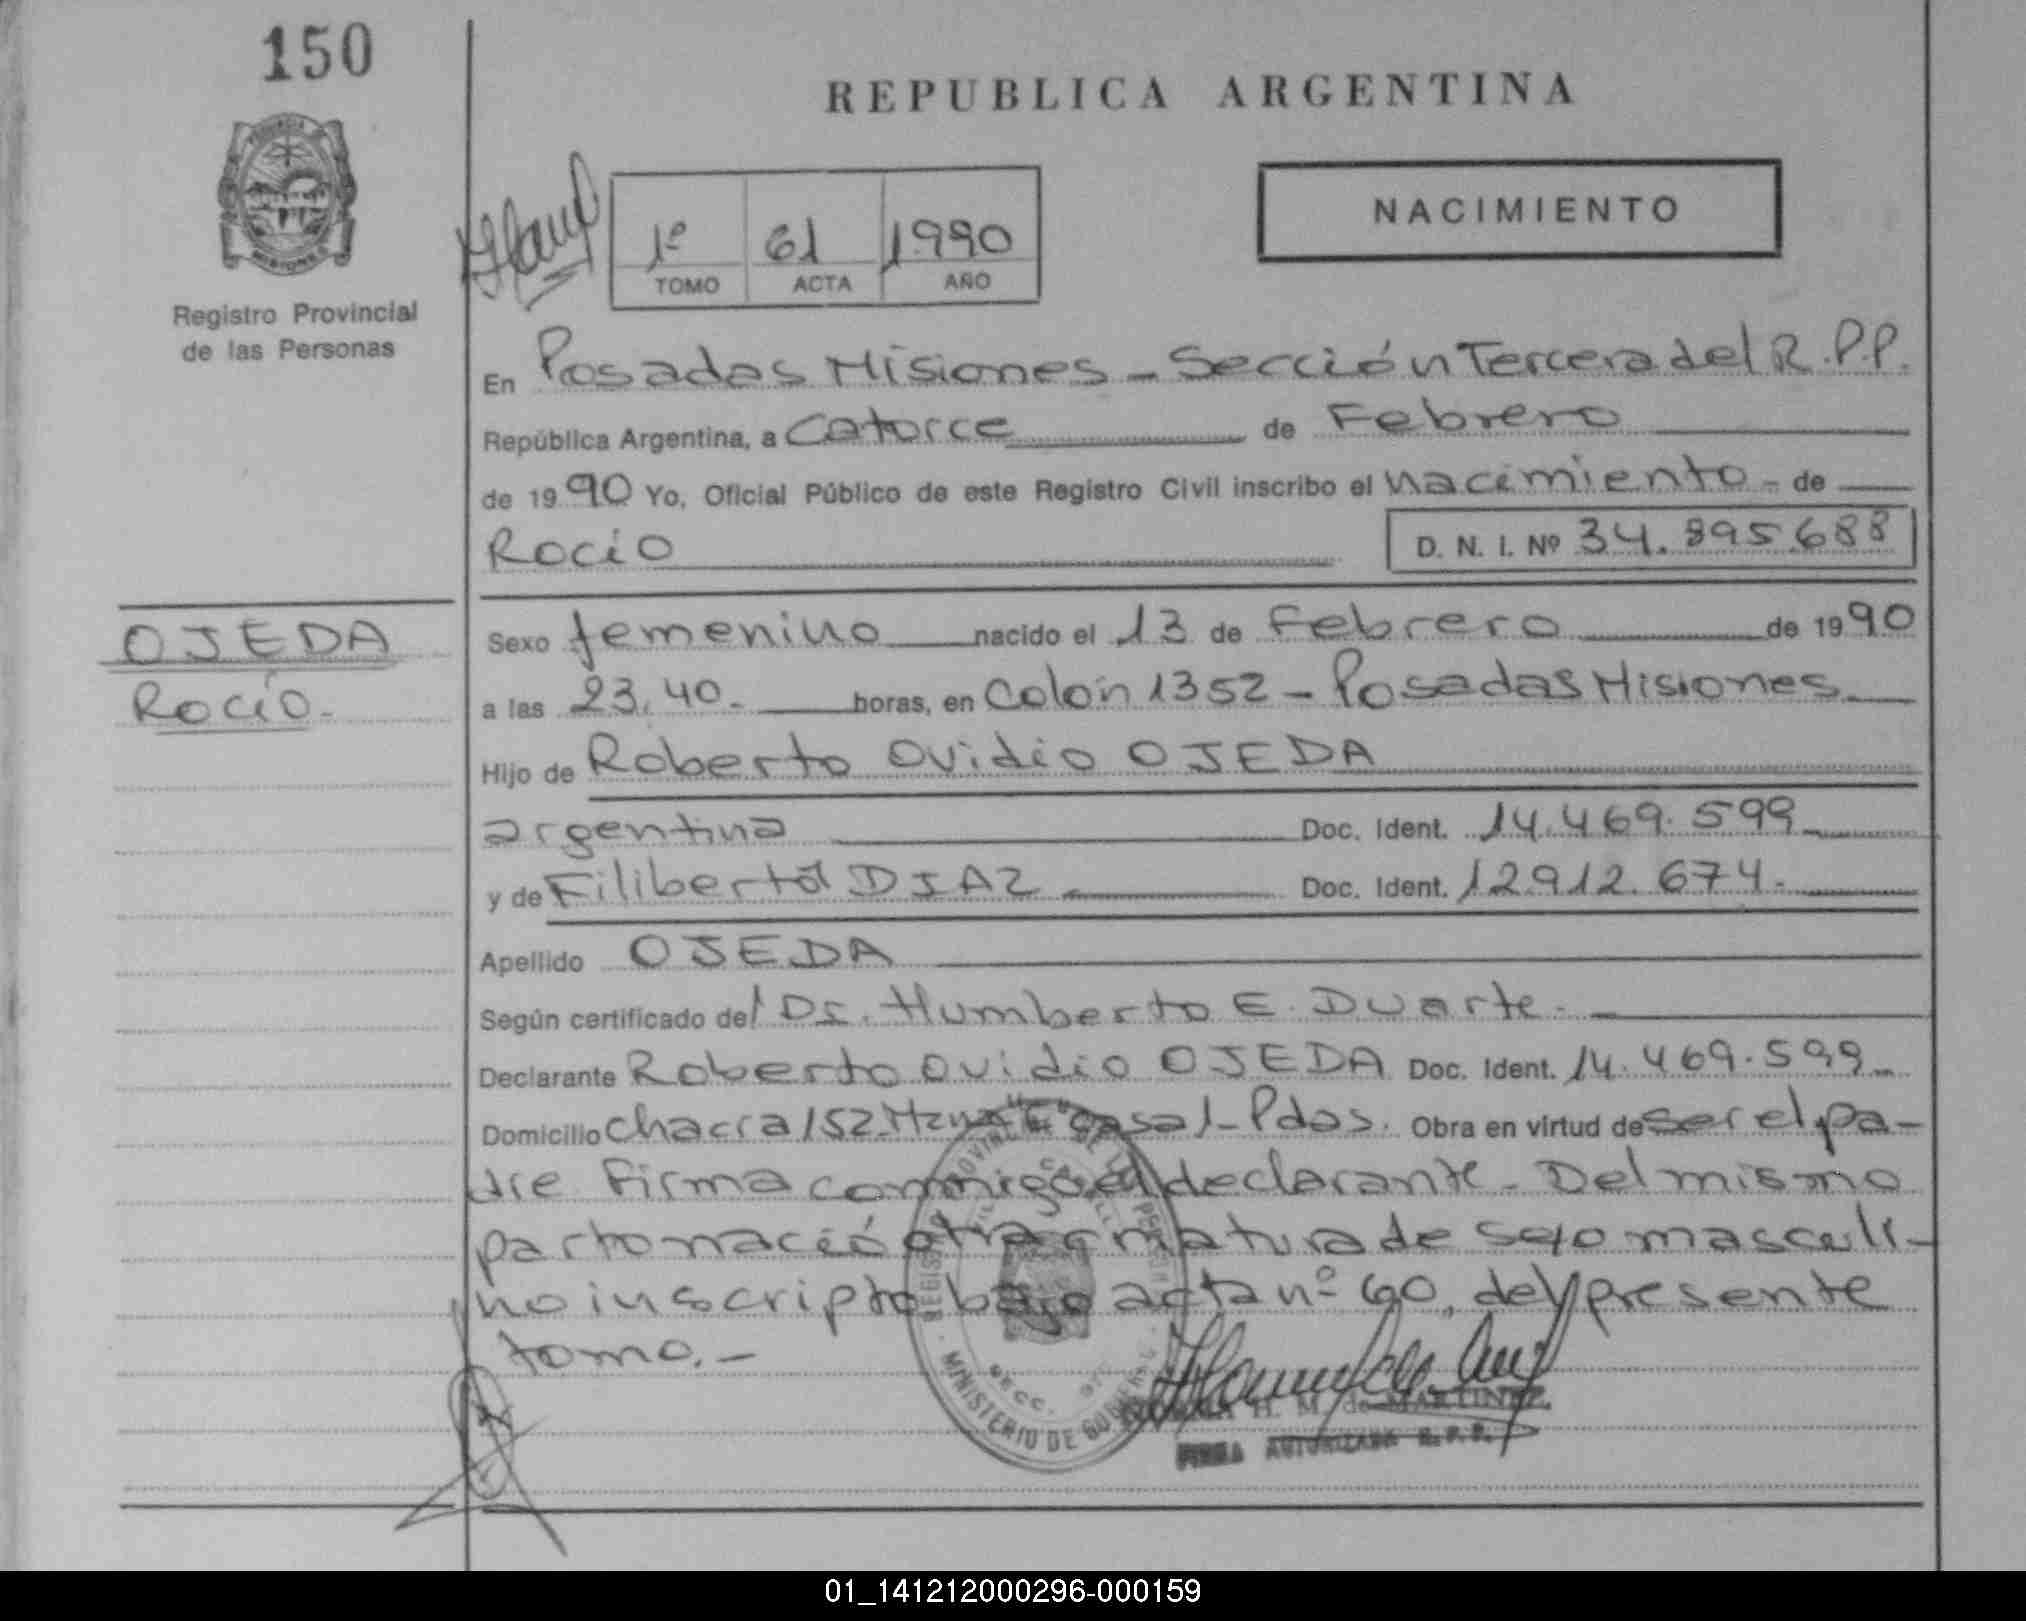 150
REPUBLICA ARGENTINA
NACIMIENTO
1º 61 1990
TOMO ACTA AÑO
Registro Provincial
de las Personas
En Posadas Misiones - Sección Tercera del R.P.P.
República Argentina, a Catorce de Febrero
de 1990 Yo, Oficial Público de este Registro Civil inscribo el nacimiento - de
Rocío D. N. I. Nº 34.895.688
OJEDA
Rocío.-
Sexo femenino nacido el 13 de Febrero de 1990
a las 23,40.- horas, en Colón 1352 - Posadas Misiones
Hijo de Roberto Ovidio OJEDA
argentina Doc. Ident. 14.469.599
y de Filiberta DIAZ.- Doc. Ident. 12.912.674.-
Apellido OJEDA
Según certificado del Dr. Humberto E. Duarte.-
Declarante Roberto Ovidio OJEDA Doc. Ident. 14.469.599
Domicilio Chacra 152 Mzna casa 1- Pdas. Obra en virtud de ser el pa-
dre firma conmigo el declarante - Del mismo
parto nació otra criatura de sexo masculi-
no inscripto bajo acta nº 60, del presente
tomo.-
REGISTRO PROVINCIAL DE LAS PERSONAS
MINISTERIO DE GOBIERNO
SECC.
H. M. de MARTINEZ
FIRMA AUTORIZADA R.P.P.
01_141212000296-000159